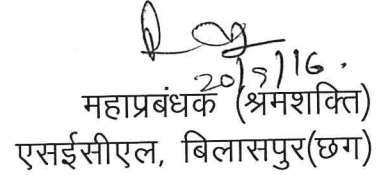 20/5/16.
महाप्रबंधक (श्रमशक्ति)
एसईसीएल, बिलासपुर(छग)